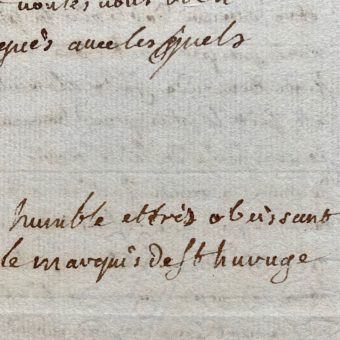 voules vous bien
avec lesquels
humble et très obeissant
le marquis de st huruge